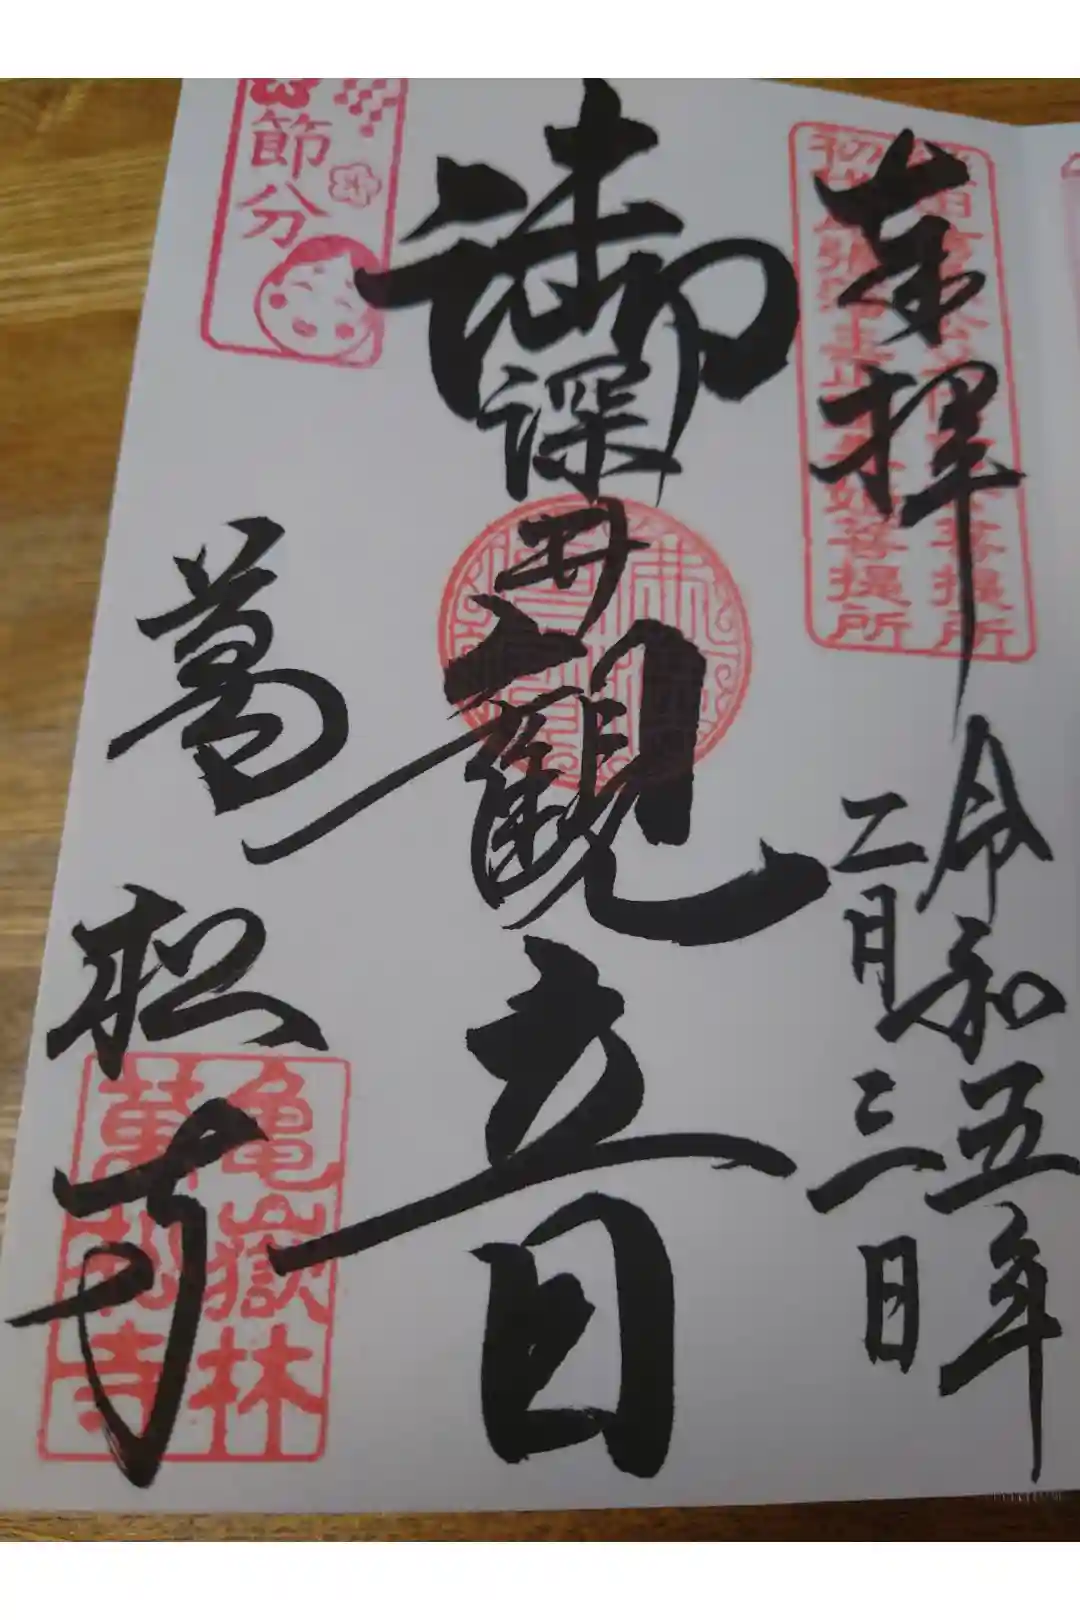 奉拝
菩提所
菩提所
令和五年
二月三日
御深井観音
節分
萬松寺
亀嶽林
萬松寺